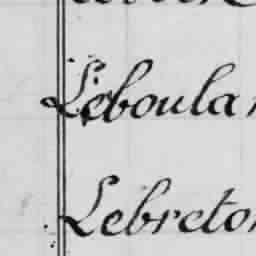 Leboular
Lebreton